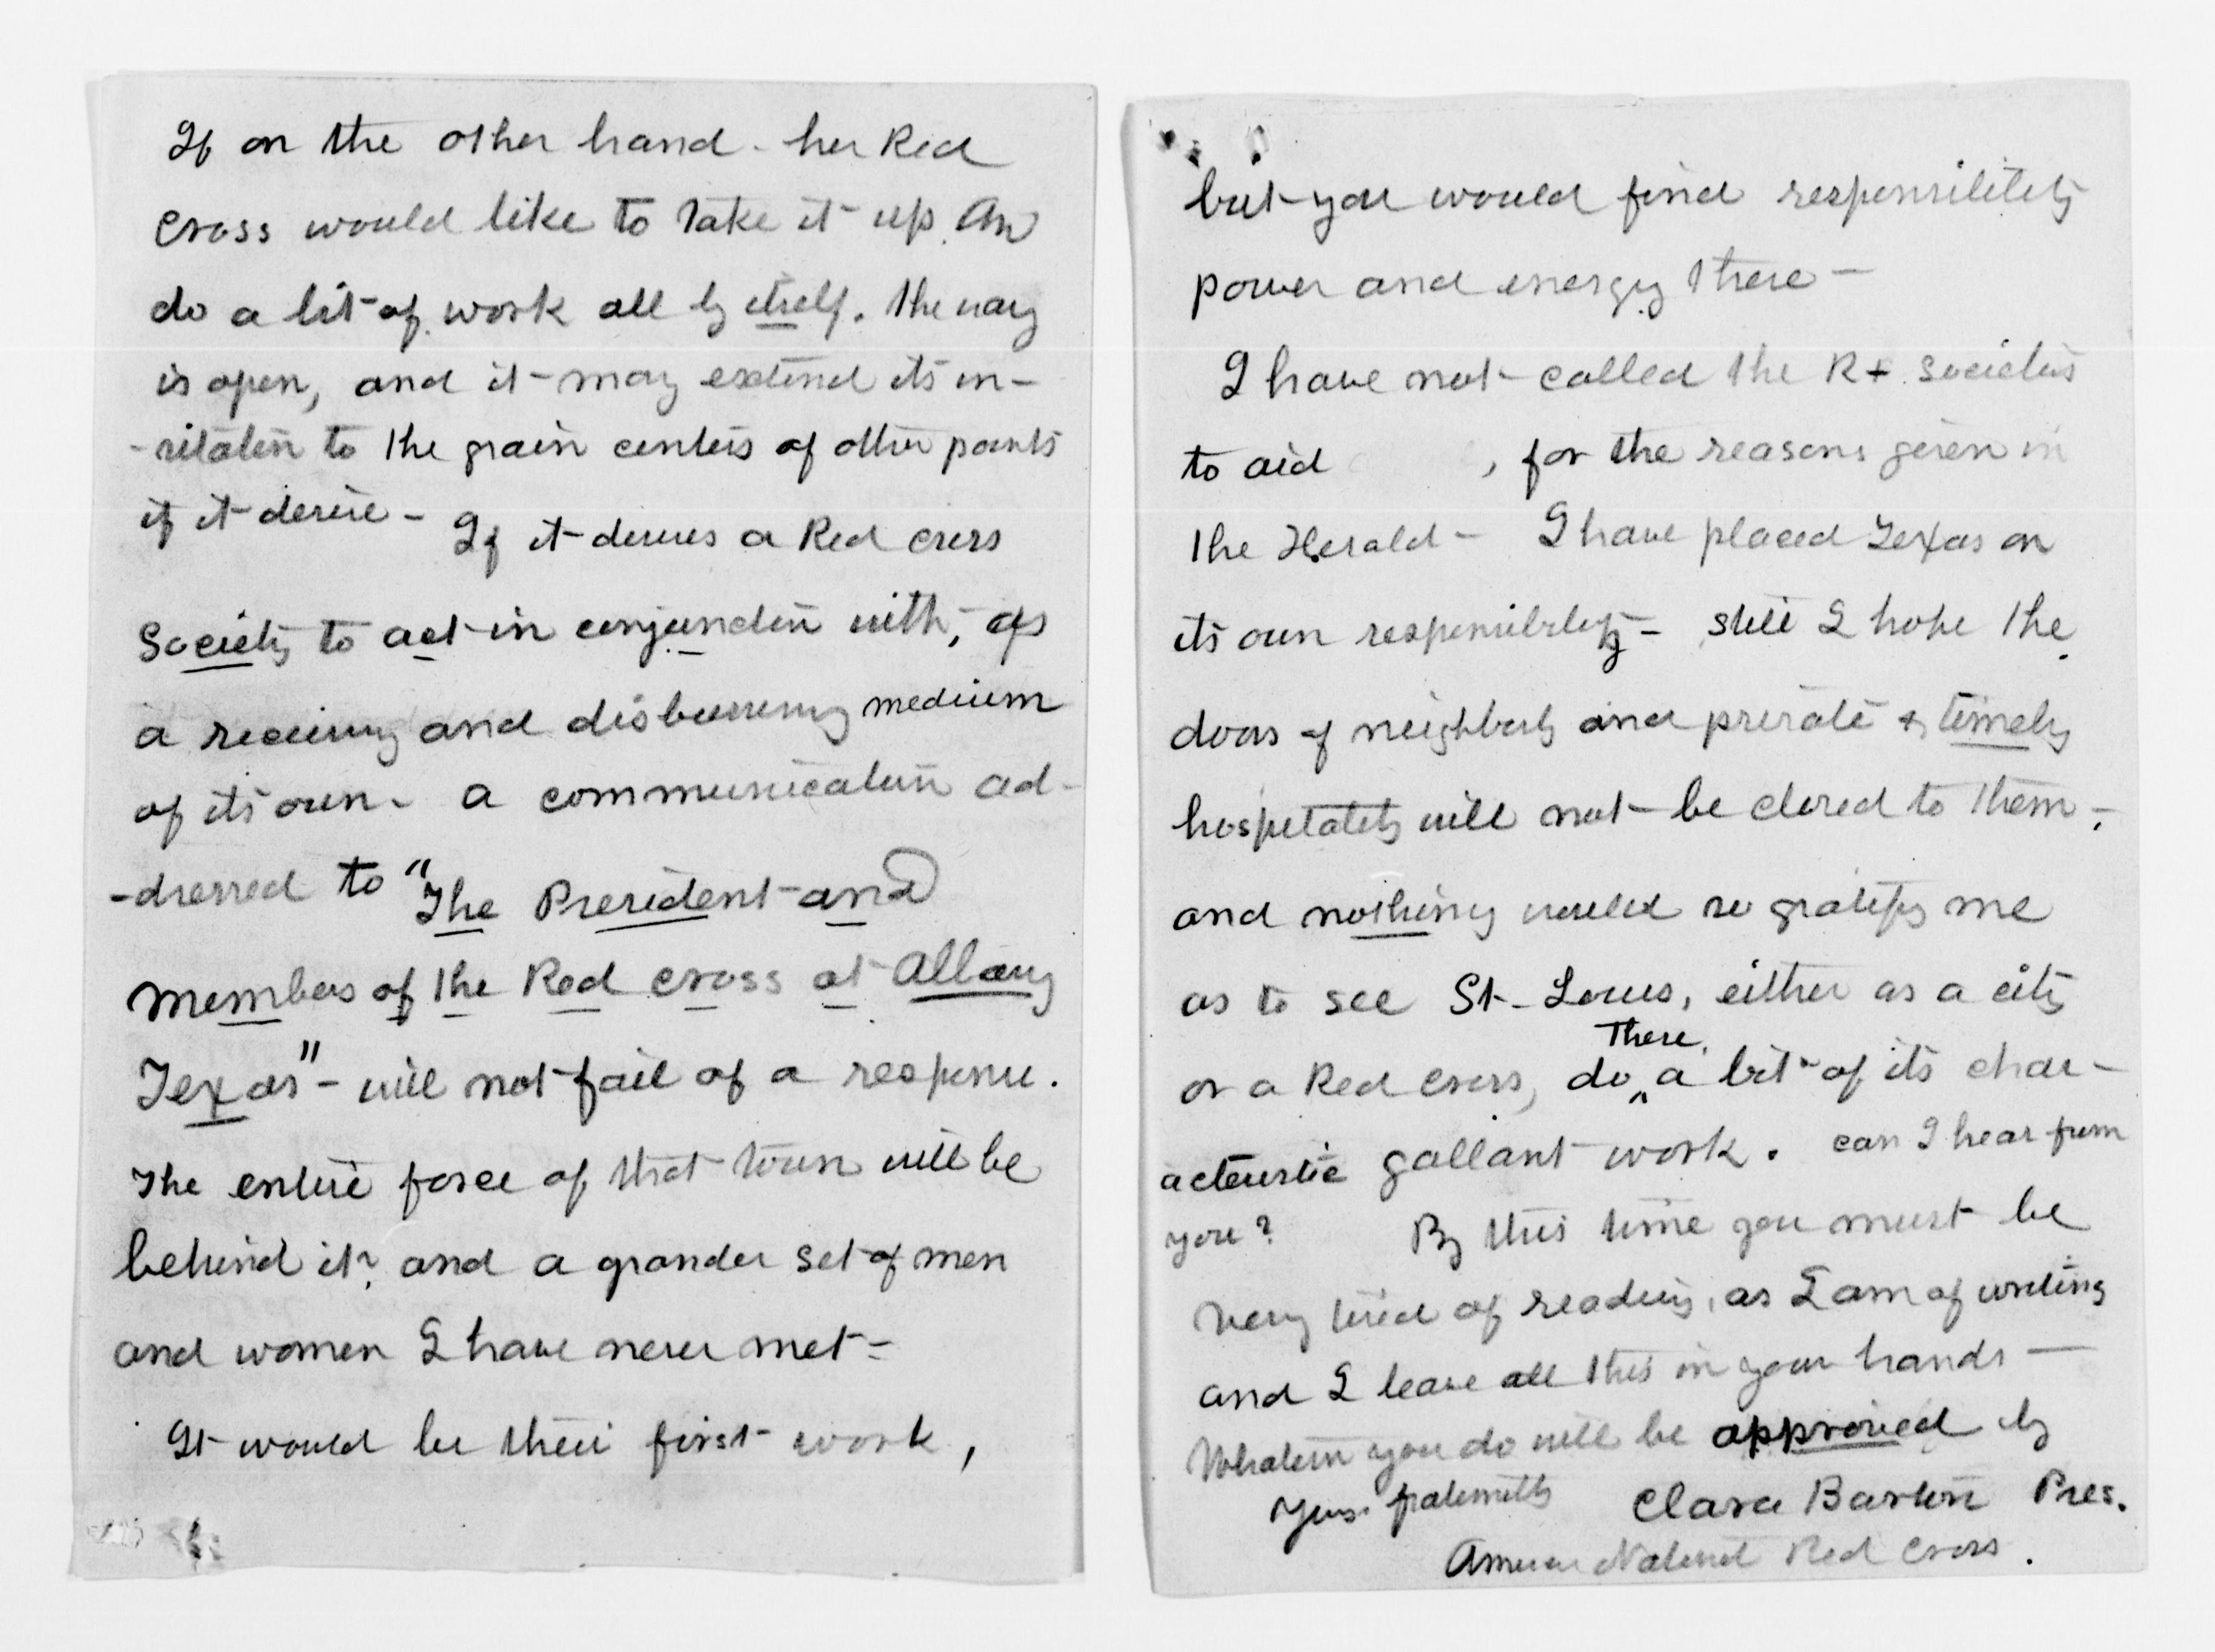 If on the other hand - her Red
Cross would like to take it up. An
do a bit of work all by itself. the way
is open, and it may extend its in-
-vitation to the grain centers of other points
if it desire - If it desires a Red Cross
Society to act in conjunction with, as
a receiving and disbursing medium
of its own - a communication ad-
-dressed to "The President and
Members of the Red Cross at Albany
Texas" - will not fail of a response.
The entire force of that town will be
behind it, and a grander set of men
and women I have never met -
It would be their first work,
but you would find responsibility
power and energy there -
I have not called the R+ societies
to aid , for the reasons given in
the Herald - I have placed Texas on
its own responsibility - still I hope the
doors of neighborly and private & timely
hospitality will not be closed to them -,
and nothing would so gratify me
as to see St. Louis, either as a city
There
or a Red Cross, do a bit of its char-
acteristic gallant work. can I hear from
you? By this time you must be
very tired of reading, as I am of writing
and I leave all this in your hands -
Whatever you do will be approved by
Yours fraternally Clara Barton Pres.
American National Red Cross.